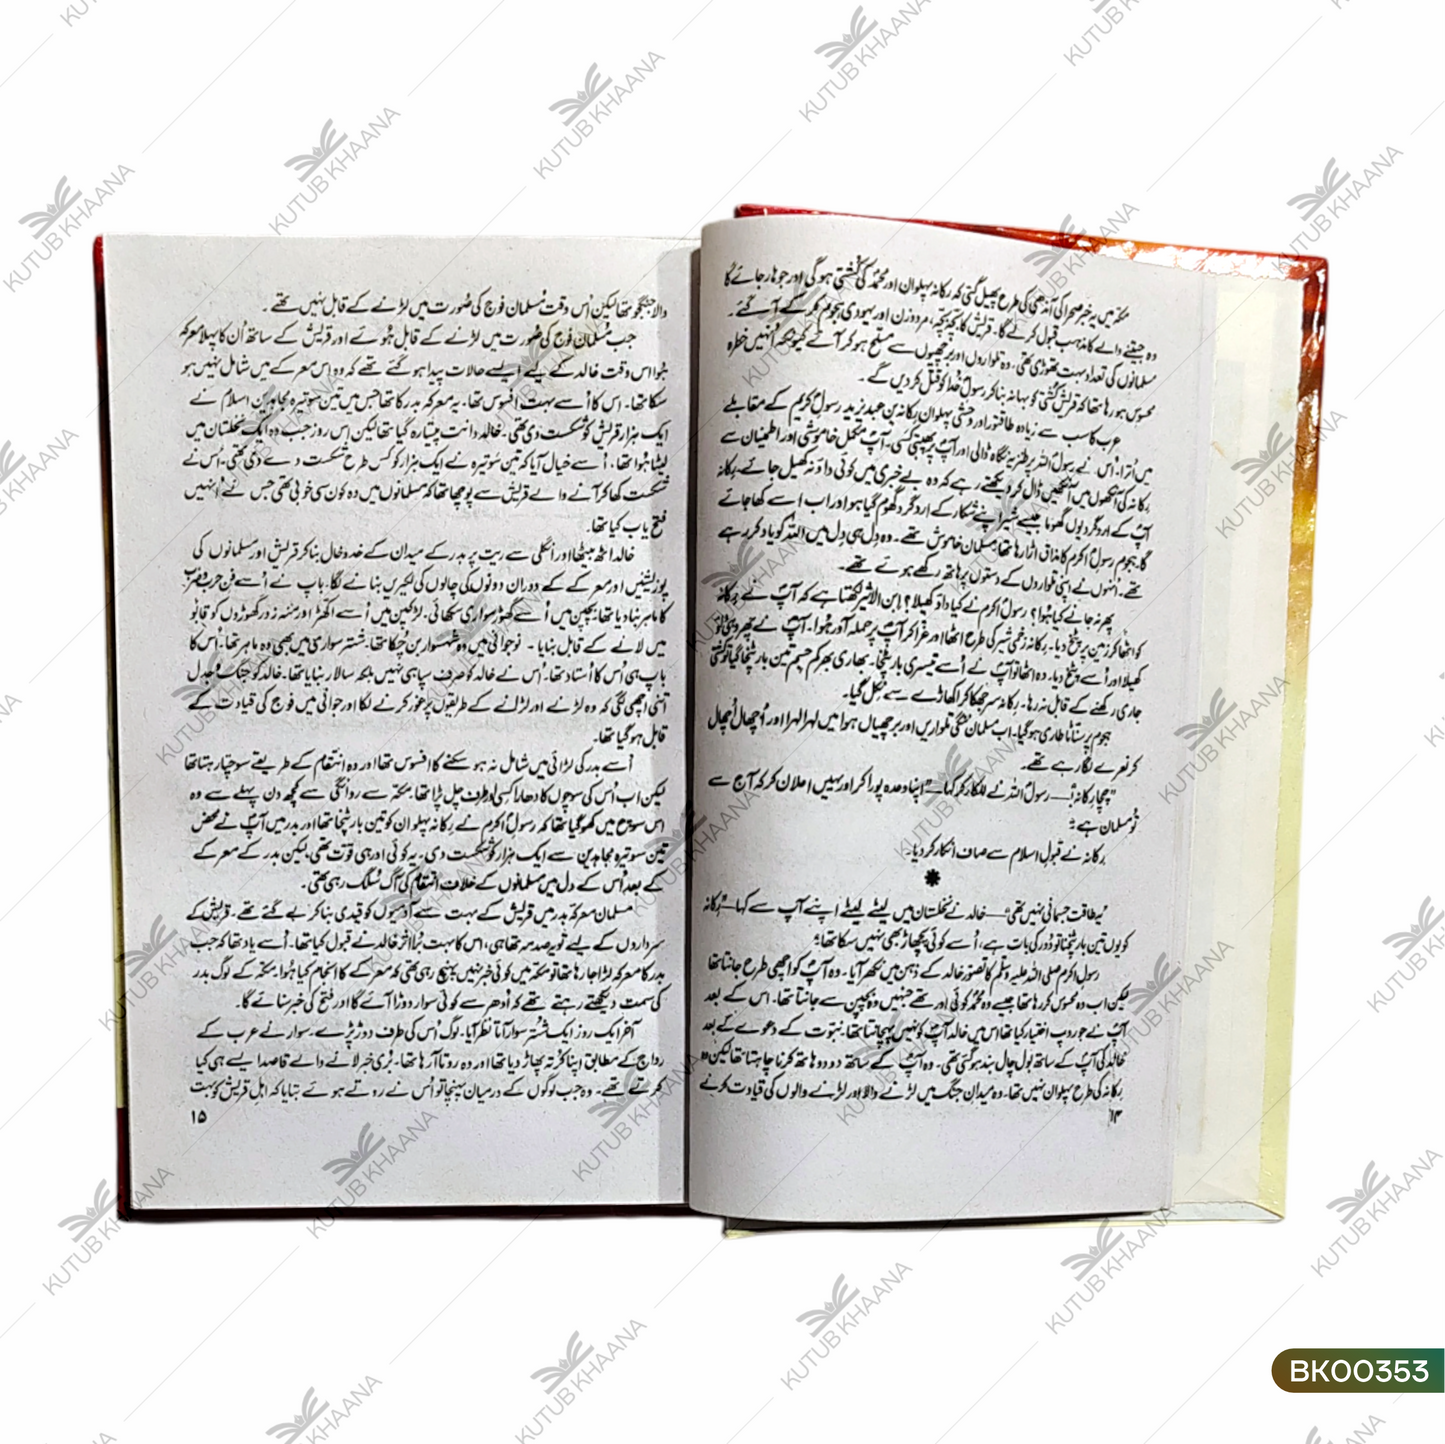 مکّہ میں یہ خبر صحرا کی آندھی کی طرح پھیل گئی کہ رکانہ پہلوان اور محمدؐ کی کُشتی ہو گی اور جو ہار جائے گا
وہ جیتنے والے کا مذہب قبول کرے گا۔ قریش کا بچّہ بچّہ، مرد و زن اور یہودی ہجوم کر کے آ گئے۔
مسلمانوں کی تعداد بہت تھوڑی تھی۔ وہ تلواروں اور برچھیوں سے مسلح ہو کر آئے کیونکہ اُنہیں خطرہ
محسوس ہو رہا تھا کہ قریش کُشتی کو بہانہ بنا کر رسولِؐ خُدا کو قتل کر دیں گے۔
عرب کا سب سے زیادہ طاقتور اور وحشی پہلوان رکانہ بن عبد یزید رسولِؐ کریم کے مقابلے
میں اُترا۔ اُس نے رسولؐ اللہ پر طنزیہ نگاہ ڈالی اور آپؐ پر پھبتی کسی۔ آپؐ مکمل خاموشی اور اطمینان سے
رکانہ کی آنکھوں میں آنکھیں ڈال کر دیکھتے رہے کہ وہ بے خبری میں کوئی داؤ نہ کھیل جائے۔ رکانہ
آپؐ کے اردگرد یوں گھوما جیسے شیر اپنے شکار کے اردگرد گھوم گیا ہو اور اب اسے کھا جائے
گا۔ ہجوم رسولِؐ اکرم کا مذاق اڑا رہا تھا، مسلمان خاموش تھے۔ وہ دِل ہی دِل میں اللہ کو یاد کر رہے
تھے۔ اُنہوں نے اپنی تلواروں کے دستوں پر ہاتھ رکھے ہوئے تھے۔
پھر نہ جانے کیا ہُوا؟ رسولِؐ اکرم نے کیا داؤ کھیلا؟ ابن الاثیر لکھتا ہے کہ آپؐ نے رکانہ
کو اُٹھا کر زمین پر پٹخ دیا۔ رکانہ زخمی شیر کی طرح اٹھا اور غرا کر آپؐ پر حملہ آور ہُوا۔ آپؐ نے پھر وہی داؤ
کھیلا اور اُسے پٹخ دیا۔ وہ اٹھا تو آپؐ نے اُسے تیسری بار پٹخا۔ بھاری بھرکم جسم تین بار پٹخا گیا تو کُشتی
جاری رکھنے کے قابل نہ رہا۔ رکانہ سر جھکا کر اکھاڑے سے نکل گیا۔
ہجوم پر سناٹا طاری ہو گیا۔ اب مسلمان ننگی تلواریں اور برچھیاں ہوا میں لہرا لہرا اور اُچھال اُچھال
کر نعرے لگا رہے تھے۔
”چچا رکانہ!“ — رسولؐ اللہ نے للکار کر کہا — ”اپنا وعدہ پورا کر اور یہیں اعلان کر کہ آج سے
تُو مسلمان ہے“
رکانہ نے قبولِ اسلام سے صاف انکار کر دیا۔
”یہ طاقت جسمانی نہیں تھی“ — خالد نے نخلستان میں لیٹے لیٹے اپنے آپ سے کہا — ”رکانہ
کو یوں تین بار پٹخنا تو دُور کی بات ہے، اُسے کوئی پچھاڑ بھی نہیں سکا تھا“
رسولِ اکرم صلی اللہ علیہ وسلم کا تصور خالد کے ذہن میں نکھر آیا۔ وہ آپؐ کو اچھی طرح جانتا تھا
لیکن اب وہ محسوس کر رہا تھا جیسے وہ محمدؐ کوئی اور تھے جنہیں وہ بچپن سے جانتا تھا۔ اس کے بعد
آپؐ نے جو روپ اختیار کیا تھا اس میں خالد آپؐ کو نہیں پہچانتا تھا۔ نبوت کے دعوے کے بعد
خالد کی آپؐ کے ساتھ بول چال بند ہو گئی تھی۔ وہ آپؐ کے ساتھ دو دو ہاتھ کرنا چاہتا تھا لیکن وہ
رکانہ کی طرح پہلوان نہیں تھا۔ وہ میدانِ جنگ میں لڑنے والا اور لڑنے والوں کی قیادت کرنے
۱۴
والا جنگجو تھا لیکن اُس وقت مُسلمان فوج کی صُورت میں لڑنے کے قابل نہیں تھے۔
جب مُسلمان فوج کی صُورت میں لڑنے کے قابل ہُوئے اور قریش کے ساتھ اُن کا پہلا معرکہ
ہُوا اس وقت خالد کے لیے ایسے حالات پیدا ہو گئے تھے کہ وہ اس معرکے میں شامل نہیں ہو
سکا تھا۔ اس کا اُسے بہت افسوس تھا۔ یہ معرکہ بدر کا تھا جس میں تین سو تیرہ مجاہدینِ اسلام نے
ایک ہزار قریش کو شکست دی تھی۔ خالد دانت پیستا رہ گیا تھا لیکن اس روز جب وہ ایک نخلستان میں
لیٹا ہُوا تھا، اُسے خیال آیا کہ تین سو تیرہ نے ایک ہزار کو کس طرح شکست دے دی تھی۔ اُس نے
شکست کھا کر آنے والے قریش سے پوچھا تھا کہ مسلمانوں میں وہ کون سی خوبی تھی جس نے اُنہیں
فتح یاب کیا تھا۔
خالد اٹھ بیٹھا اور اُنگلی سے ریت پر بدر کے میدان کے خدوخال بنا کر قریش اور مسلمانوں کی
پوزیشنیں اور معرکے کے دوران دونوں کی چالوں کی لکیریں بنانے لگا۔ باپ نے اُسے فنِ حرب و ضرب
کا ماہر بنا دیا تھا۔ بچپن میں اُسے گھوڑ سواری سکھائی۔ لڑکپن میں اُسے اکھڑ اور منہ زور گھوڑوں کو قابو
میں لانے کے قابل بنایا۔ نوجوانی میں وہ شہسوار بن چُکا تھا۔ شتر سواری میں بھی وہ ماہر تھا۔ اُس کا
باپ ہی اُس کا اُستاد تھا۔ اُس نے خالد کو صرف سپاہی نہیں بلکہ سالار بنایا تھا۔ خالد کو جنگ و جدل
اتنی اچھی لگی کہ وہ لڑنے اور لڑانے کے طریقوں پر غور کرنے لگا اور جوانی میں فوج کی قیادت کے
قابل ہو گیا تھا۔
اُسے بدر کی لڑائی میں شامل نہ ہو سکنے کا افسوس تھا اور وہ انتقام کے طریقے سوچتا رہتا تھا
لیکن اب اُس کی سوچوں کا دھارا کسی اور طرف چل پڑا تھا۔ مکّہ سے روانگی سے کچھ دن پہلے سے وہ
اس سوچ میں کھو گیا تھا کہ رسولِؐ اکرم نے رکانہ پہلوان کو تین بار پٹخا تھا اور بدر میں آپؐ نے محض
تین سو تیرہ مجاہدین سے ایک ہزار کو شکست دی۔ یہ کوئی اور ہی قوّت تھی، لیکن بدر کے معرکے
کے بعد اُس کے دل میں مسلمانوں کے خلاف انتقام کی آگ سُلگ رہی تھی۔
مسلمان معرکۂ بدر میں قریش کے بہت سے آدمیوں کو قیدی بنا کر لے گئے تھے۔ قریش کے
سرداروں کے لیے تو یہ صدمہ تھا ہی، اس کا بہت بُرا اثر خالد نے قبول کیا تھا۔ اُسے یاد تھا کہ جب
بدر کا معرکہ لڑا جا رہا تھا تو مکّہ میں کوئی خبر نہیں پہنچ رہی تھی کہ معرکے کا انجام کیا ہُوا۔ مکّہ کے لوگ بدر
کی سمت دیکھتے رہتے تھے کہ اُدھر سے کوئی سوار دوڑا آئے گا اور فتح کی خبر سنائے گا۔
آخر ایک روز ایک شُتر سوار آتا نظر آیا۔ لوگ اُس کی طرف دوڑ پڑے۔ سوار نے عرب کے
رواج کے مطابق اپنا کُرتہ پھاڑ دیا تھا اور وہ روتا آ رہا تھا۔ بُری خبر لانے والے قاصد ایسے ہی کیا
کرتے تھے۔ وہ جب لوگوں کے درمیان پہنچا تو اُس نے روتے ہوئے بتایا کہ اہلِ قریش کو بہت
۱۵
KUTUB KHAANA
BK00353